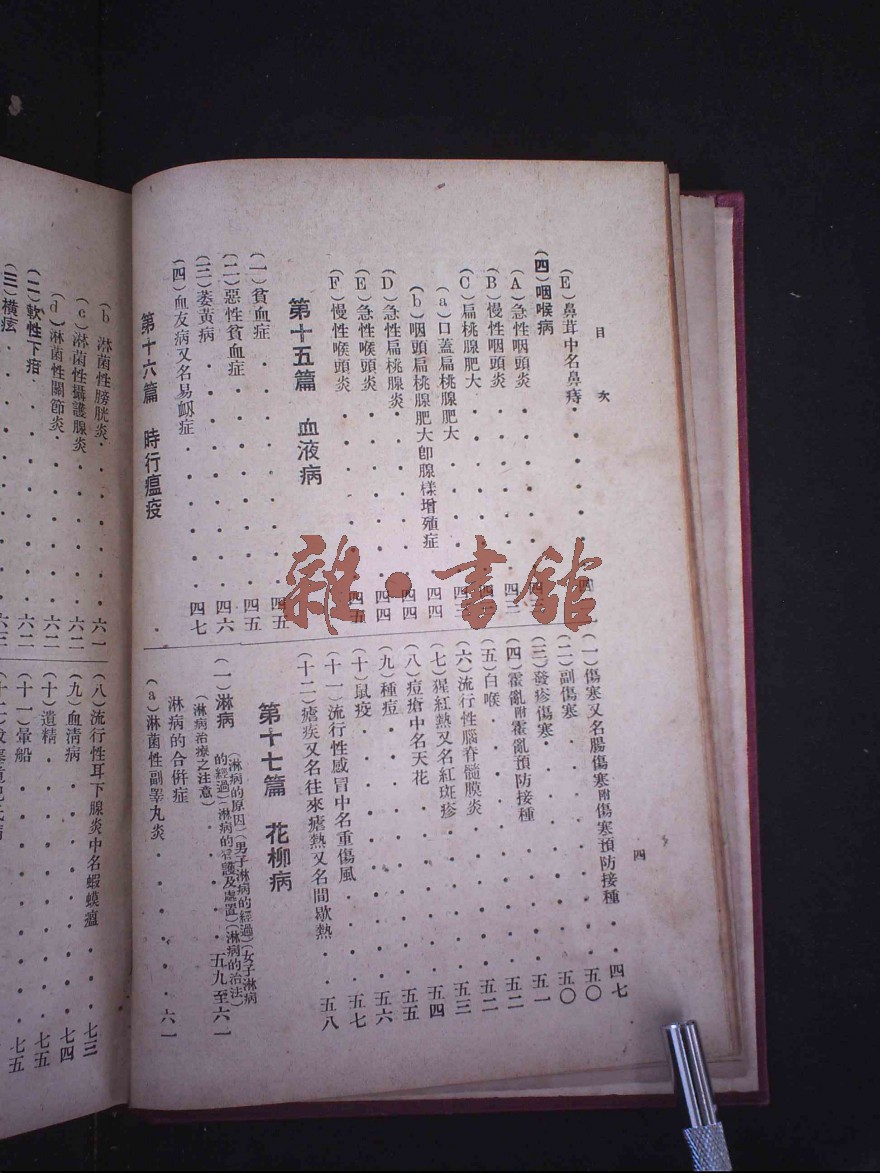 目次
(E)鼻茸中名鼻痔
(四)咽喉病
(A)急性咽頭炎 四二
(B)慢性咽頭炎
(C)扁桃腺肥大 四三
(a)口蓋扁桃腺肥大 四四
(b)咽頭扁桃腺肥大卽腺樣增殖症 四四
(D)急性扁桃腺炎 四四
(E)急性喉頭炎 四五
(F)慢性喉頭炎
第十五篇 血液病
(一)貧血症 四五
(二)惡性貧血症 四五
(三)萎黃病 四六
(四)血友病又名易衂症 四七
第十六篇 時行瘟疫
四
(一)傷寒又名腸傷寒附傷寒預防接種 四七
(二)副傷寒 五〇
(三)發疹傷寒 五〇
(四)霍亂附霍亂預防接種 五一
(五)白喉 五二
(六)流行性腦脊髓膜炎 五二
(七)猩紅熱又名紅斑疹 五三
(八)痘瘡中名天花 五四
(九)種痘 五五
(十)鼠疫 五六
(十一)流行性感冒中名重傷風 五七
(十二)瘧疾又名往來瘧熱又名間歇熱 五八
第十七篇 花柳病
(一)淋病(淋病的原因)(男子淋病的經過)(女子淋病的經過)(淋病的看護及處置)(淋病的治法)(淋病治療之注意) 五九至六一
淋病的合併症
(a)淋菌性副睪丸炎 六一
(b 淋菌性膀胱炎 六一
(c)淋菌性攝護腺炎 六二
(d)淋菌性關節炎 六二
(二)軟性下疳 六二
(三)橫痃 六三
(八)流行性耳下腺炎中名蝦蟆瘟 七三
(九)血清病 七四
(十)遺精 七五
(十一)暈船 七五
雜·書館